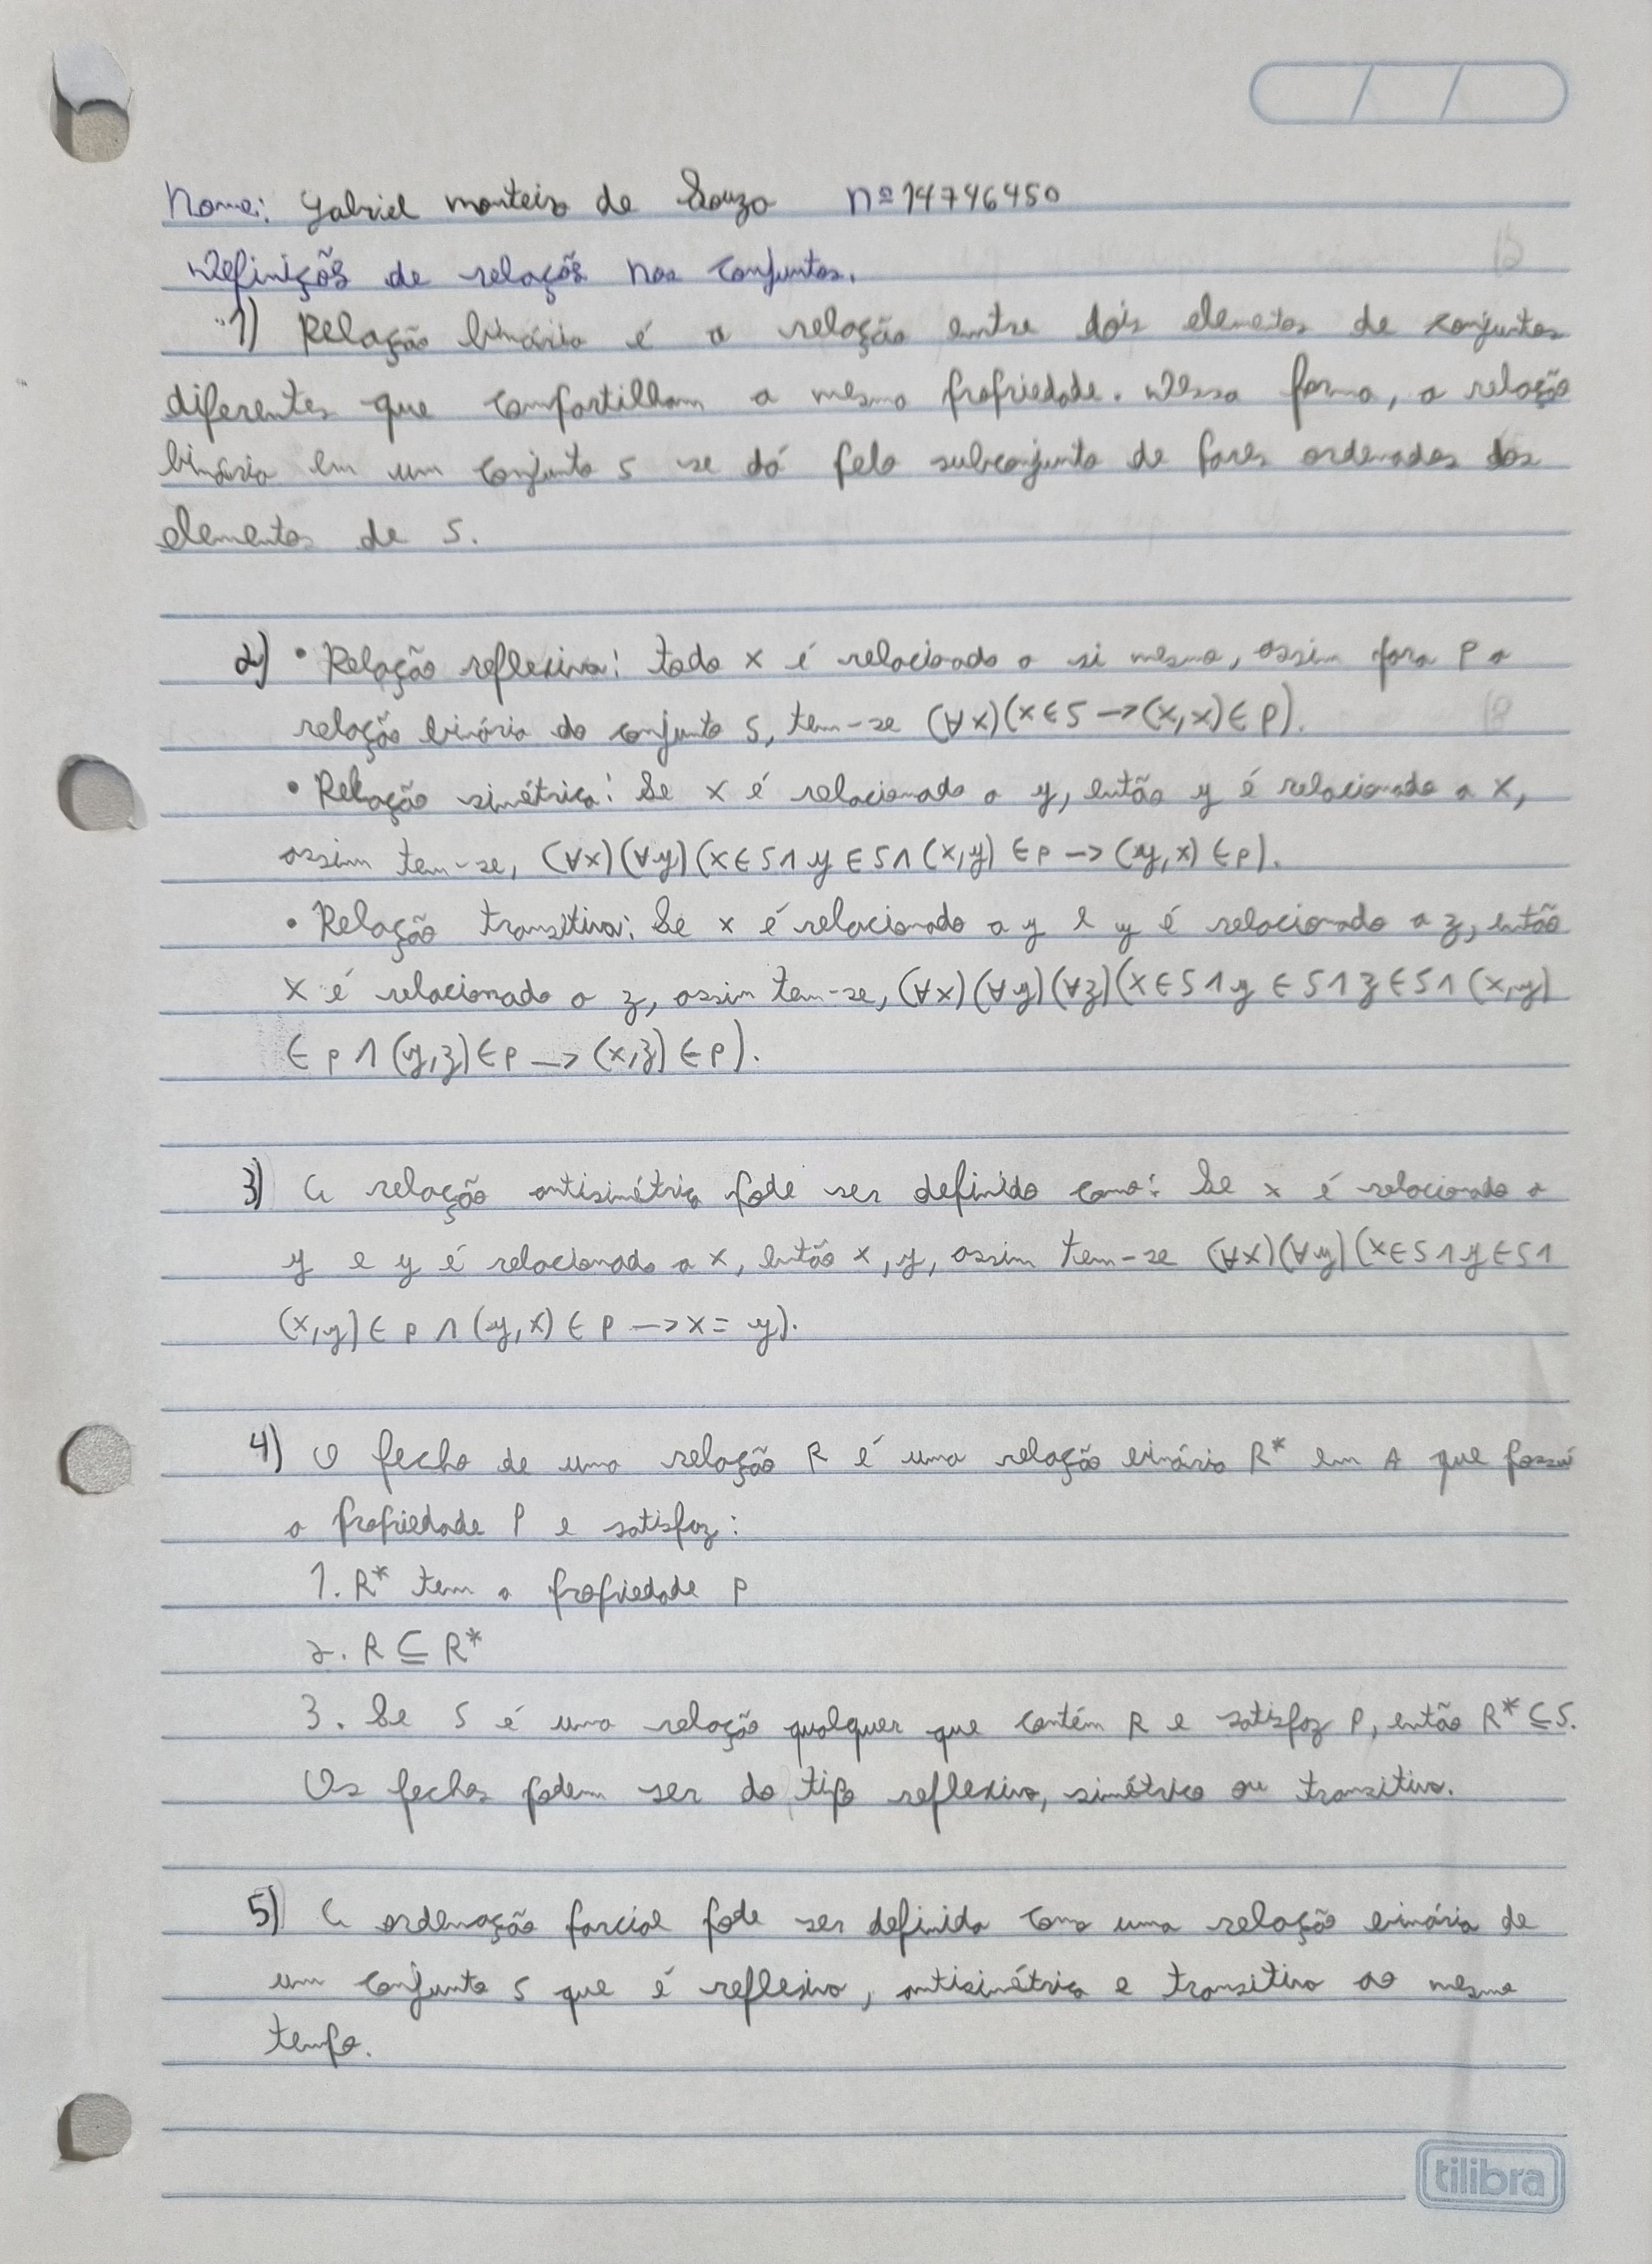 Nome: Gabriel monteiro de Souza nº 14746450
Definiçõs de relaçõs nos conjuntos.
1) Relação binária é a relação entre dois elementos de conjuntos
diferentes que compartilham a mesma propriedade. Dessa forma, a relação
binária em um conjunto S se dá pelo subconjunto de pares ordenados dos
elementos de S.
2) • Relação reflexiva: todo x é relacionado a si mesmo, assim para P a
relação binária do conjunto S, tem-se (∀x)(x∈S->(x,x)∈P).
• Relação simétrica: Se x é relacionado a y, então y é relacionado a x,
assim tem-se, (∀x)(∀y)(x∈S∧y∈S∧(x,y)∈P->(y,x)∈P).
• Relação transitiva: Se x é relacionado a y e y é relacionado a z, então
x é relacionado a z, assim tem-se, (∀x)(∀y)(∀z)(x∈S∧y∈S∧z∈S∧(x,y)
∈P∧(y,z)∈P->(x,z)∈P).
3) A relação antisimétrica pode ser definida como: Se x é relacionado a
y e y é relacionado a x, então x, y, assim tem-se (∀x)(∀y)(x∈S∧y∈S∧
(x,y)∈P∧(y,x)∈P->x=y).
4) O fecho de uma relação R é uma relação binária R* em A que possui
a propriedade P e satisfaz:
1. R* tem a propriedade P
2. R⊆R*
3. Se S é uma relação qualquer que contém R e satisfaz P, então R*⊆S.
Os fechos podem ser do tipo reflexivo, simétrico ou transitivo.
5) A ordenação parcial pode ser definida como uma relação binária de
um conjunto S que é reflexiva, antisimétrica e transitiva ao mesmo
tempo.
tilibra